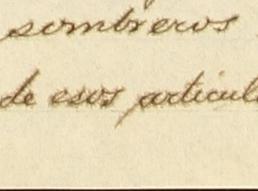 sombreros
de esos articul